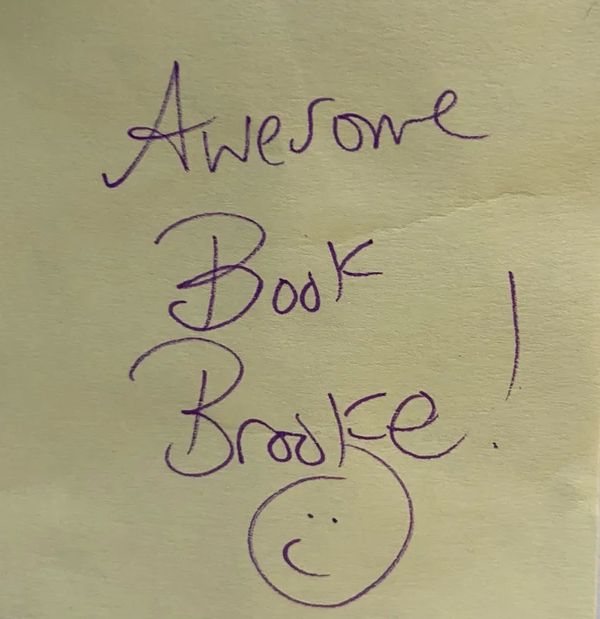 Awesome
Book
Brooke!